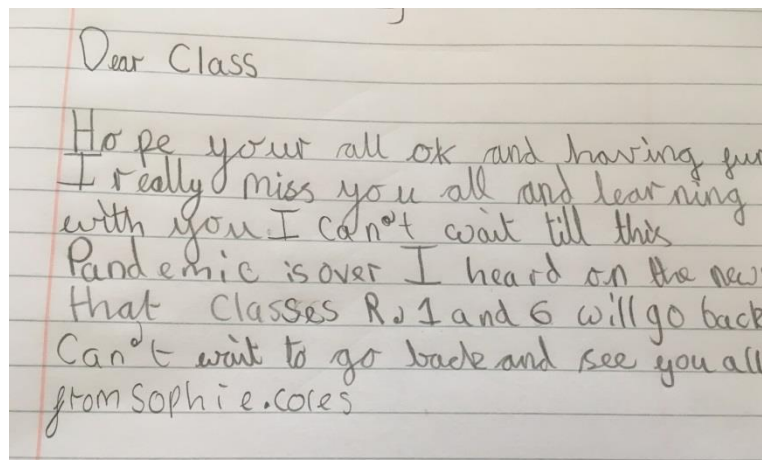 Dear Class
Hope your all ok and having fun
I really miss you all and learning
with you. I can't wait till this
Pandemic is over I heard on the new
that Classes R, 1 and 6 will go back
Can't wait to go back and see you all
from Sophie.coles